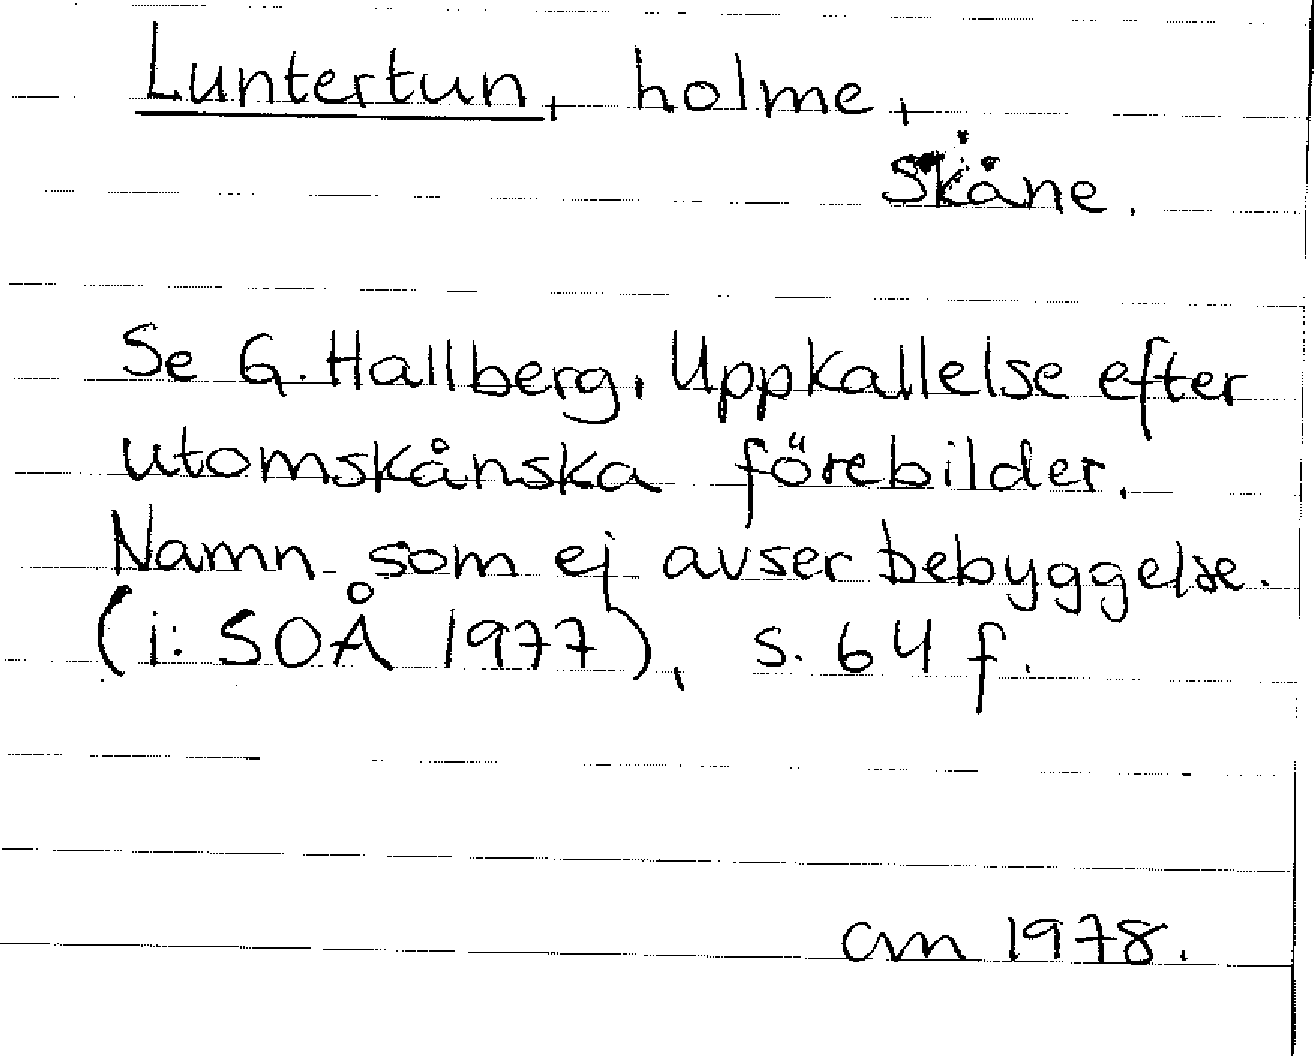 Luntertun, holme,
Skåne.
Se G. Hallberg, Uppkallelse efter
utomskånska förebilder.
Namn som ej avser bebyggelse.
(i: SOÅ 1977), s. 64 f.
am 1978.